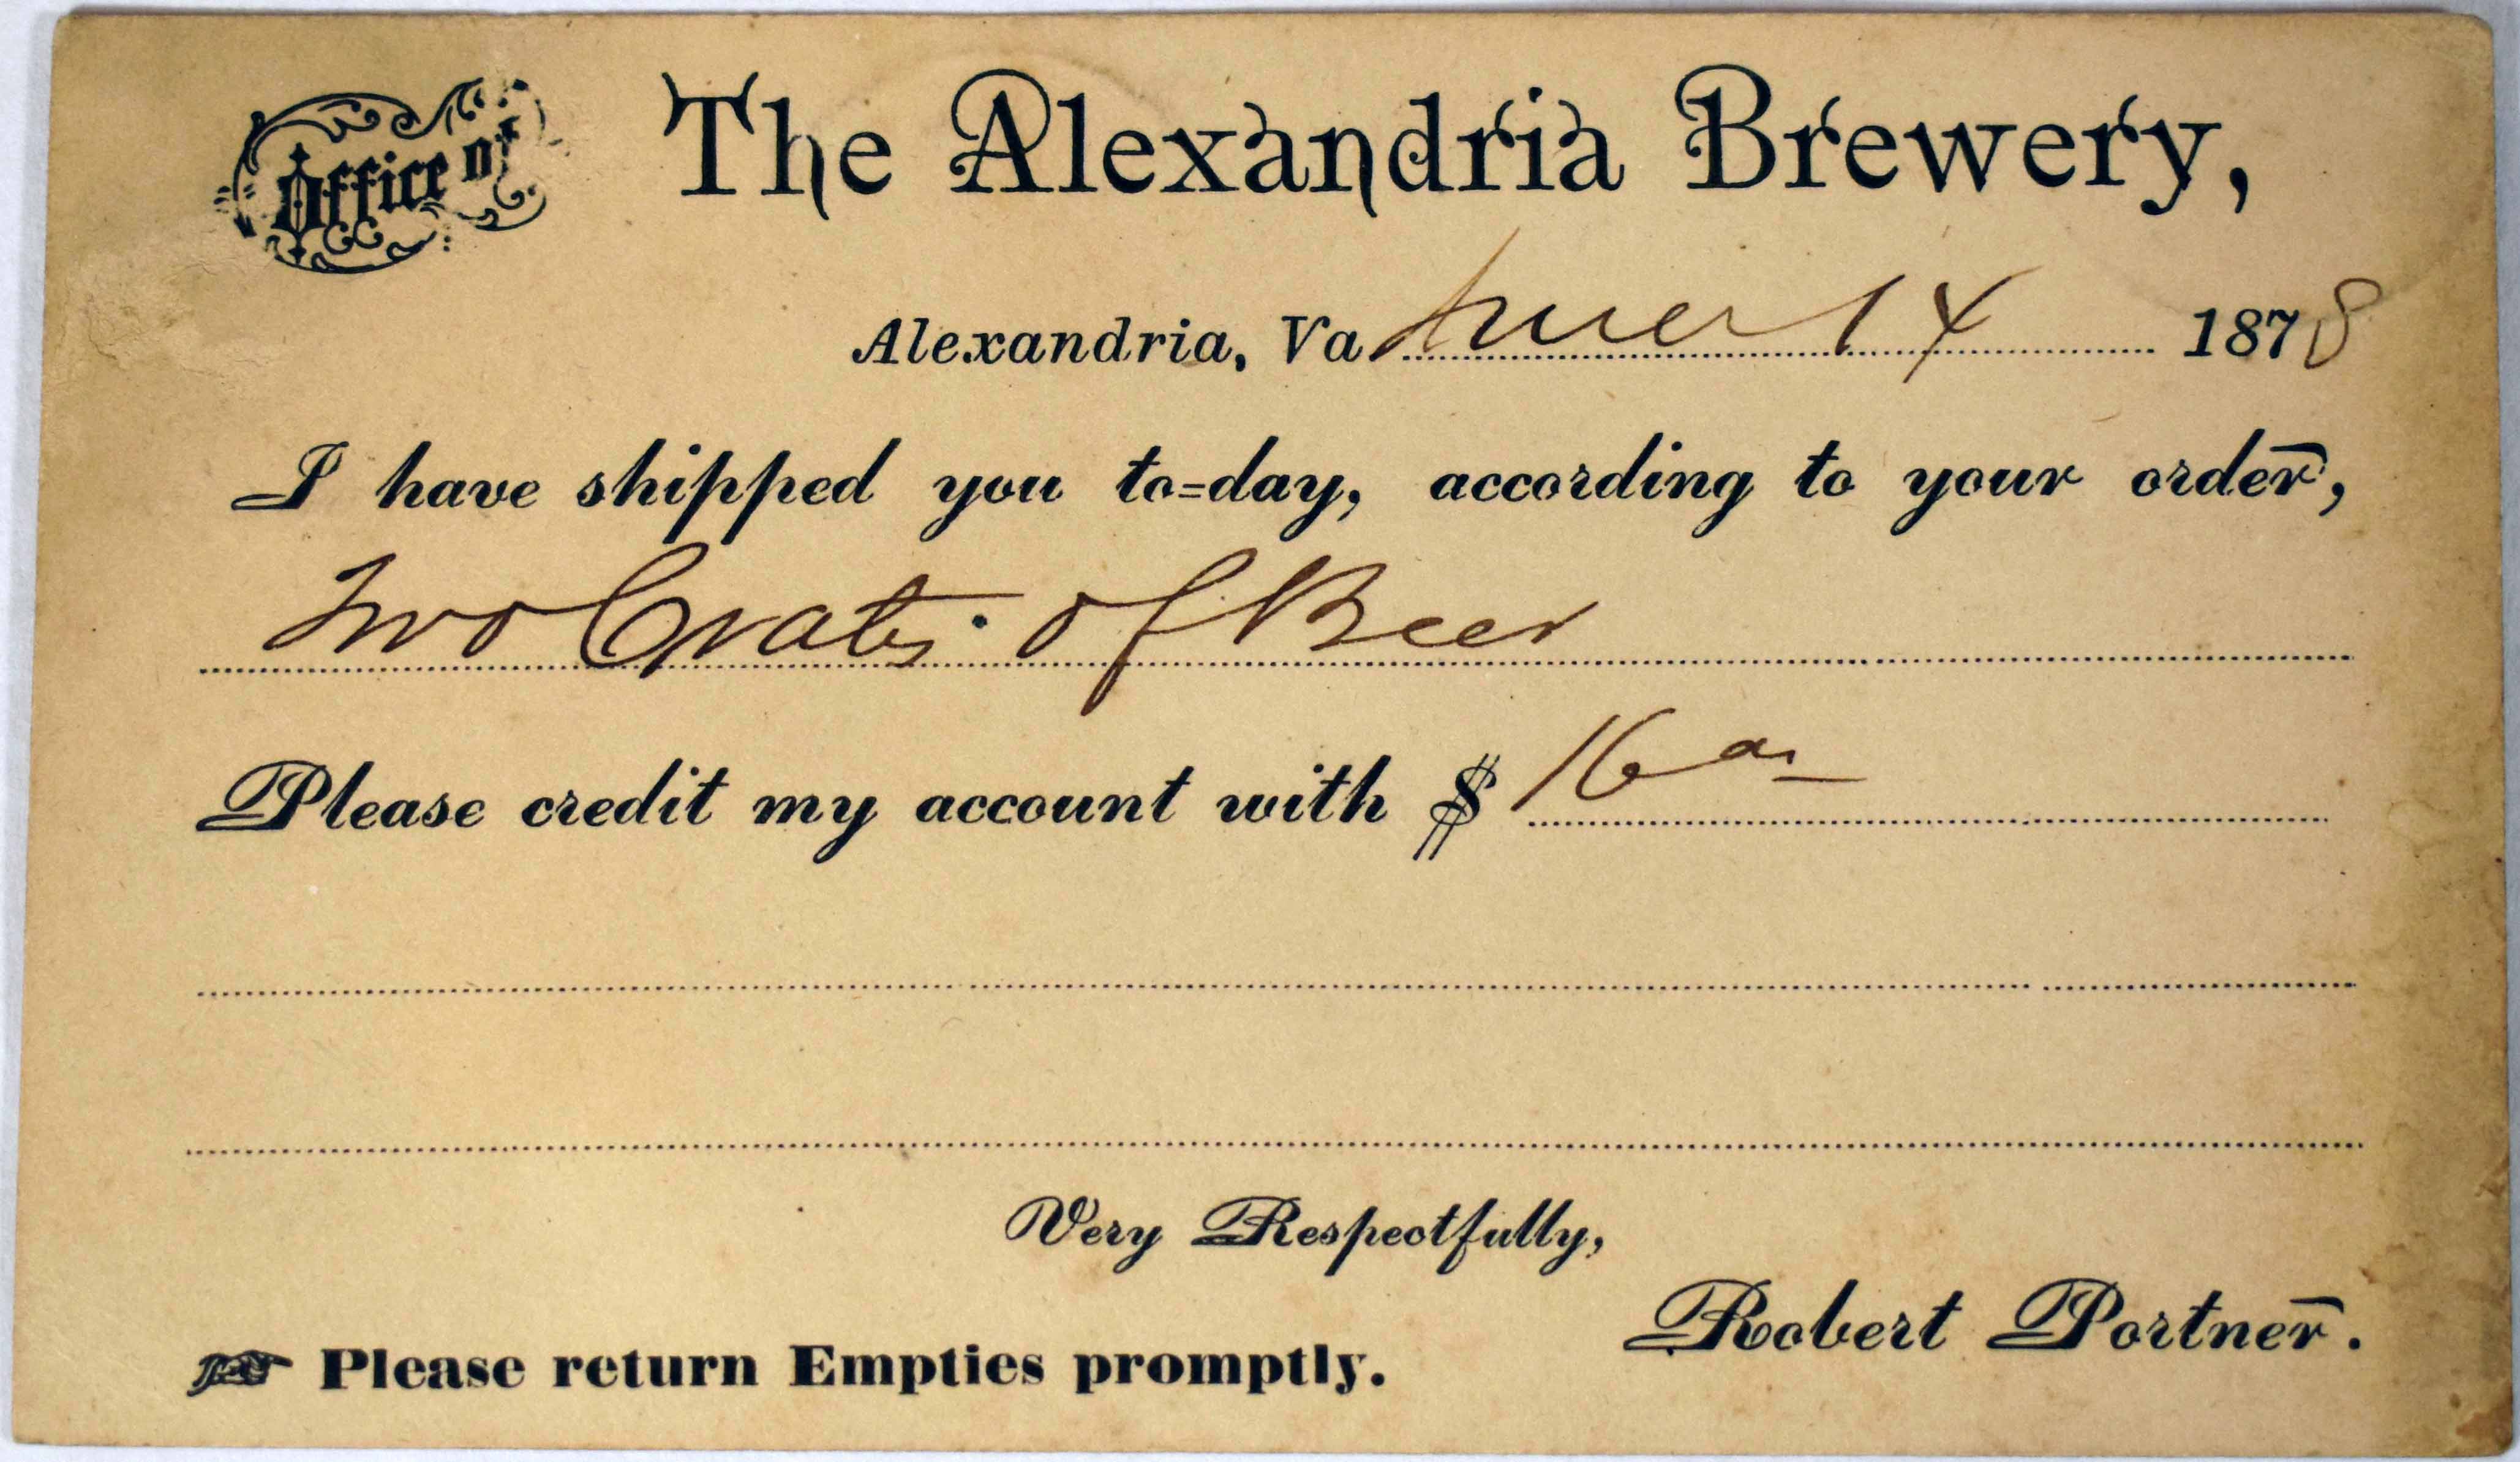 Office of The Alexandria Brewery,
Alexandria, Va 14 1878
I have shipped you to=day, according to your order,
Two Crates of Beer
Please credit my account with $ 16
Very Respectfully,
Robert Portner.
☞ Please return Empties promptly.